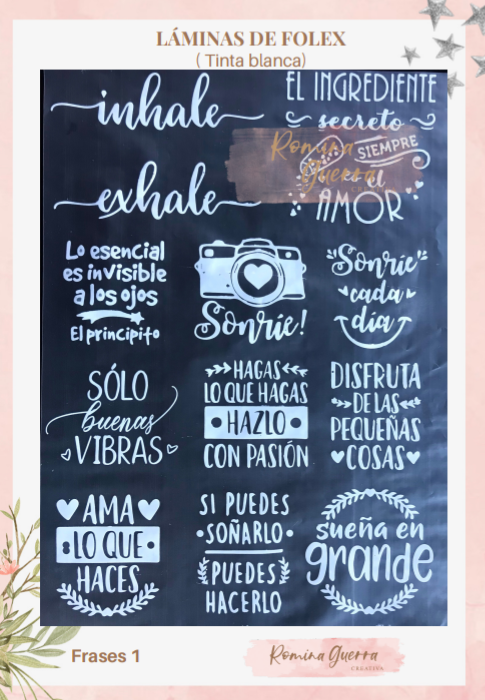 LÁMINAS DE FOLEX
( Tinta blanca)
inhale
exhale
EL INGREDIENTE
secreto
SIEMPRE
es el
AMOR
Romina
Guerra
Lo esencial
es invisible
a los ojos
El principito
Sonríe!
"Sonríe"
cada
día
SÓLO
buenas
VIBRAS
HAGAS
LO QUE HAGAS
• HAZLO •
CON PASIÓN
DISFRUTA
DE LAS
PEQUEÑAS
COSAS
AMA
LO QUE
HACES
SI PUEDES
•SOÑARLO•
PUEDES
HACERLO
sueña en
grande
Frases 1
Romina Guerra
CREATIVA